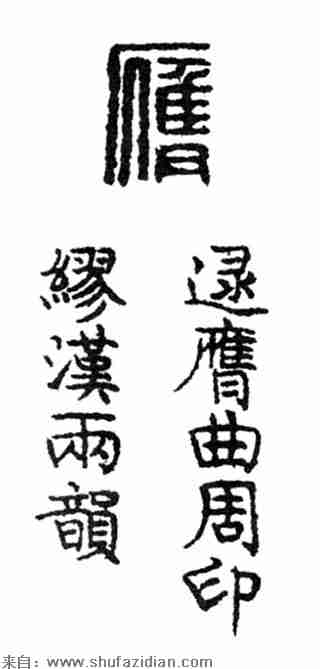 膺
逯膺曲周印
繆漢兩韻
来自：www.shufazidian.com